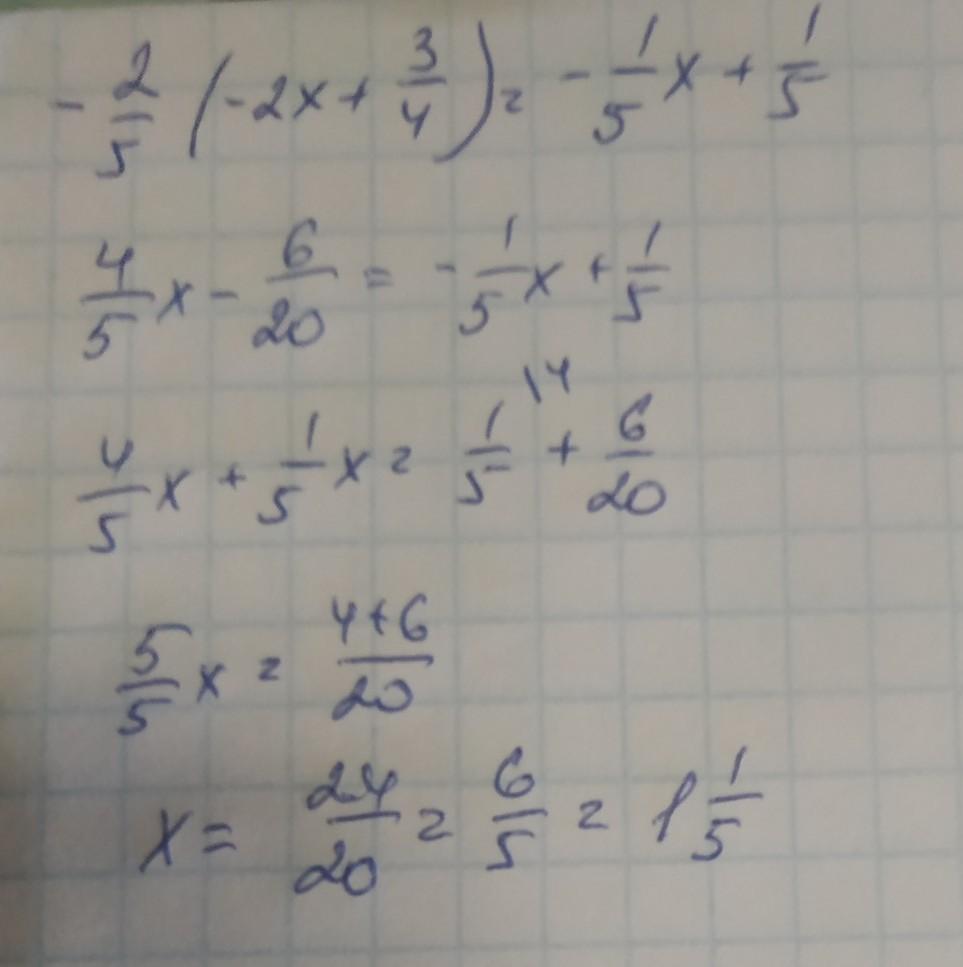 -2/5 (-2x + 3/4) = -1/5 x + 1/5
4/5 x - 6/20 = -1/5 x + 1/5
4/5 x + 1/5 x = 1/5 \4 + 6/20
5/5 x = 4+6/20
x = 24/20 = 6/5 = 1 1/5